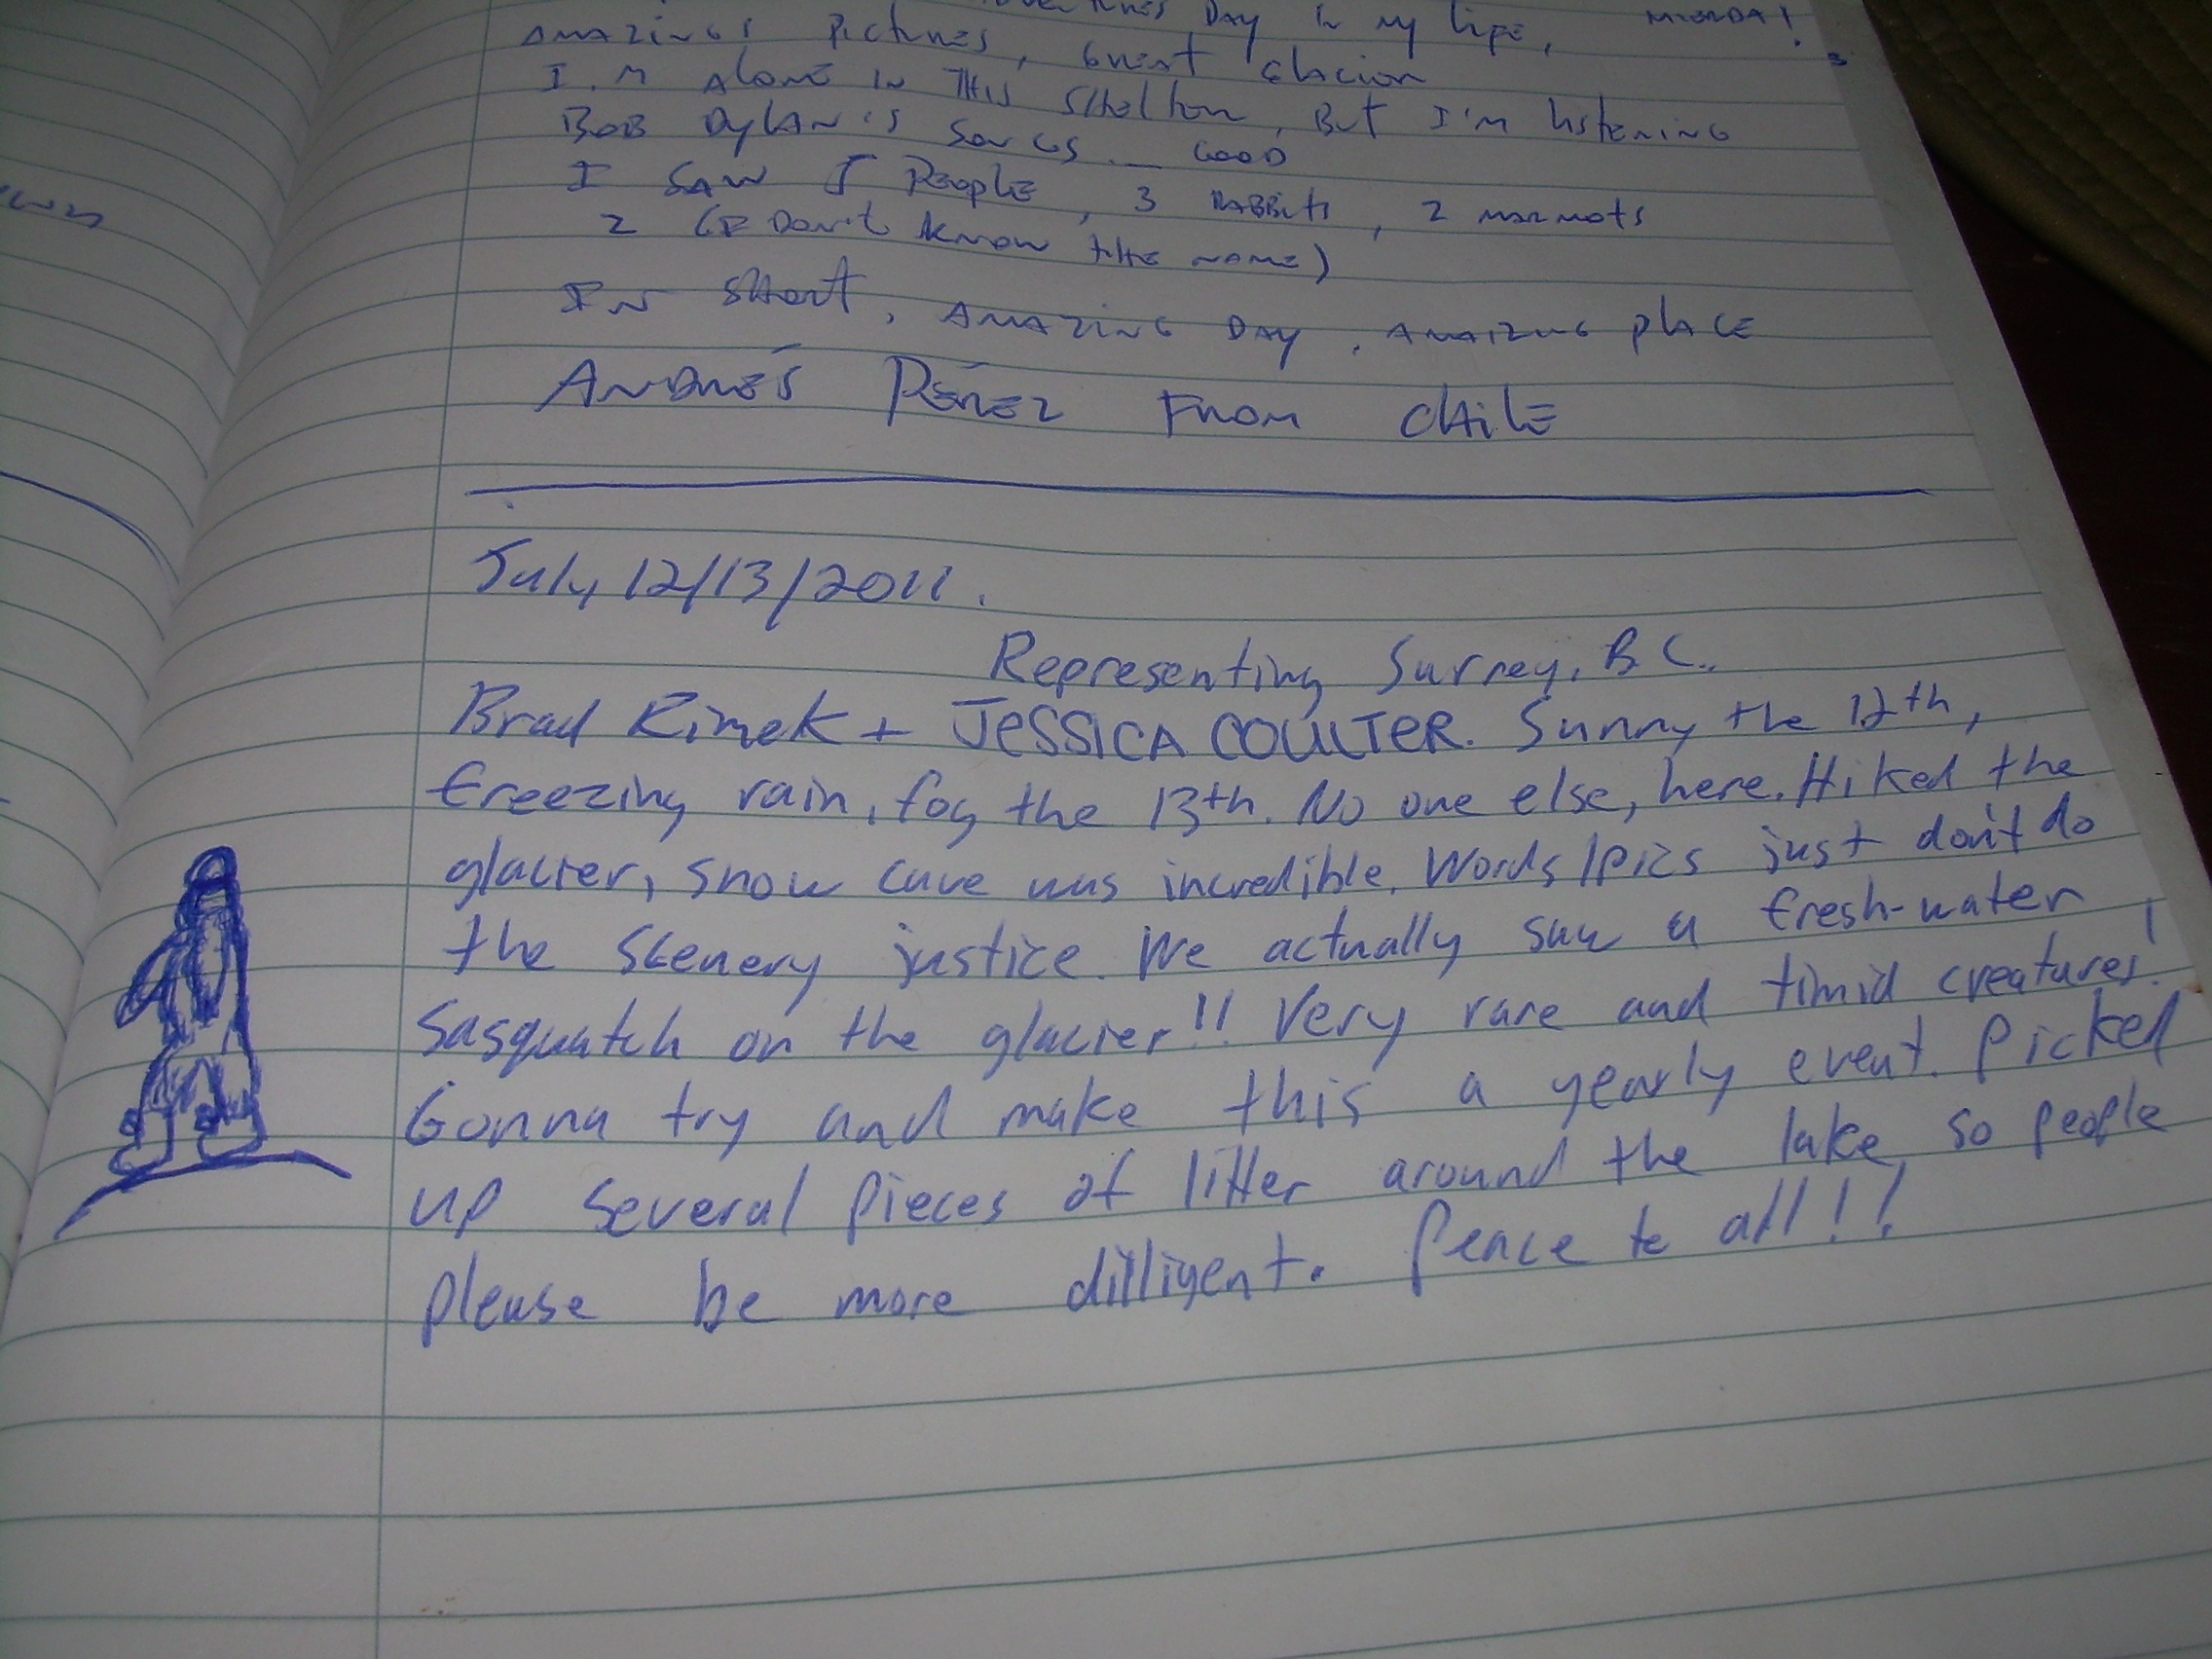 DAY IN MY LIFE, MIERDA!
AMAZINGS PICTURES, GREAT GLACIOR
I.M ALONE IN THIS SHELTER, BUT I'M LISTENING
BOB DYLAN'S SONGS... GOOD
I SAW 5 PEOPLE, 3 RABBITS, 2 MARMOTS
2 (I DON'T KNOW THE NAME)
IN SHORT, AMAZING DAY, AMAIZING PLACE
ANDRÉS PÉREZ FROM CHILE
July 12/13/2011.
Representing Surrey, B.C.
Brad Rimek + JESSICA COULTER. Sunny the 12th,
freezing rain, fog the 13th. No one else, here. Hiked the
glacier, snow cave was incredible. Words/pics just don't do
the scenery justice. We actually saw a fresh-water
Sasquatch on the glacier!! Very rare and timid creatures!
Gonna try and make this a yearly event. Picked
up several pieces of litter around the lake, so people
please be more dilligent. Peace to all!!